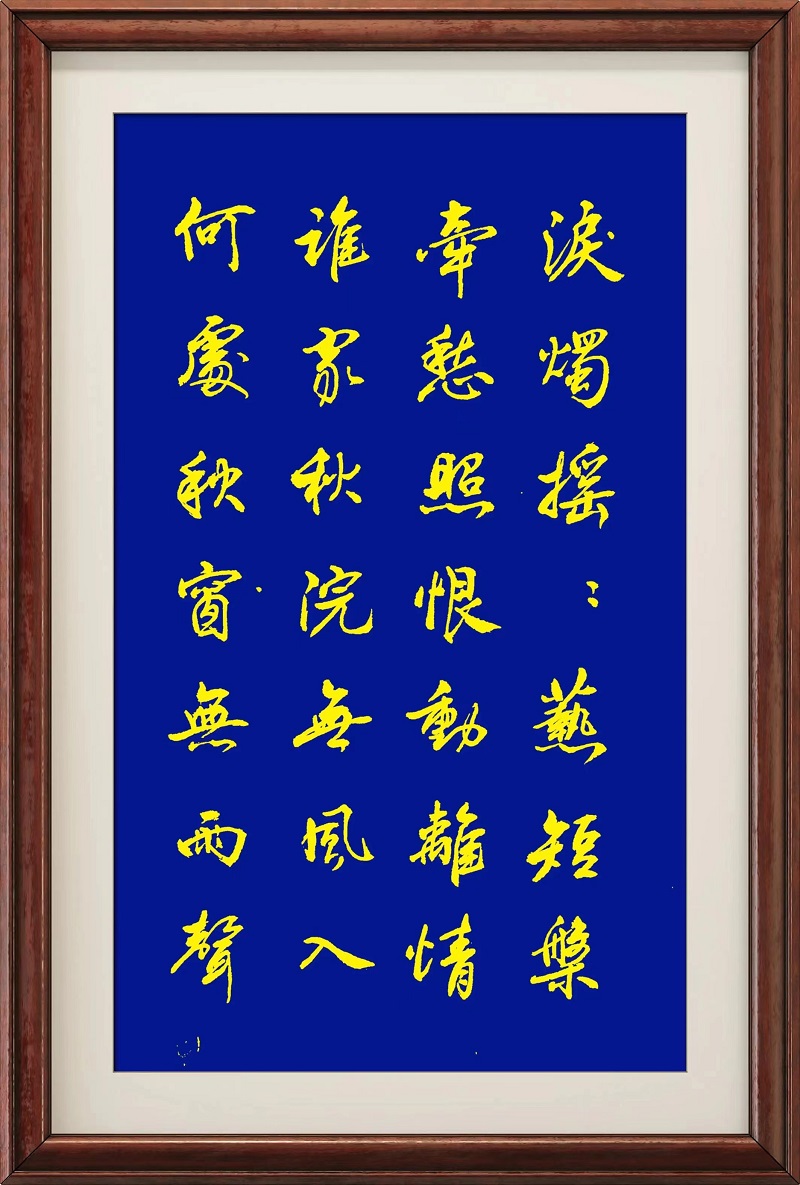 淚燭摇：爇短檠
牽愁照恨動離情
誰家秋院無風入
何處秋窗無雨聲